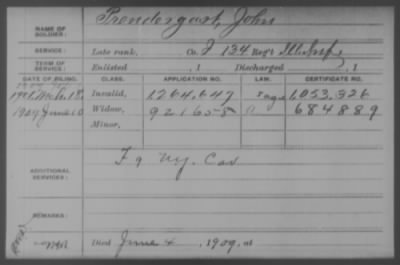 NAME OF SOLDIER: Prendergast, John
SERVICE: Late rank, Co. I 134 Reg't Ill. Inf.
TERM OF SERVICE: Enlisted , 1 Discharged , 1
DATE OF FILING. CLASS. APPLICATION NO. LAW. CERTIFICATE NO.
Invalid, 1,264,647 1,053,326
1909 June 10 Widow, 921658 684889
Minor,
ADDITIONAL SERVICES: F 9 N.Y. Cav
REMARKS:
Died June 4, 1909, at